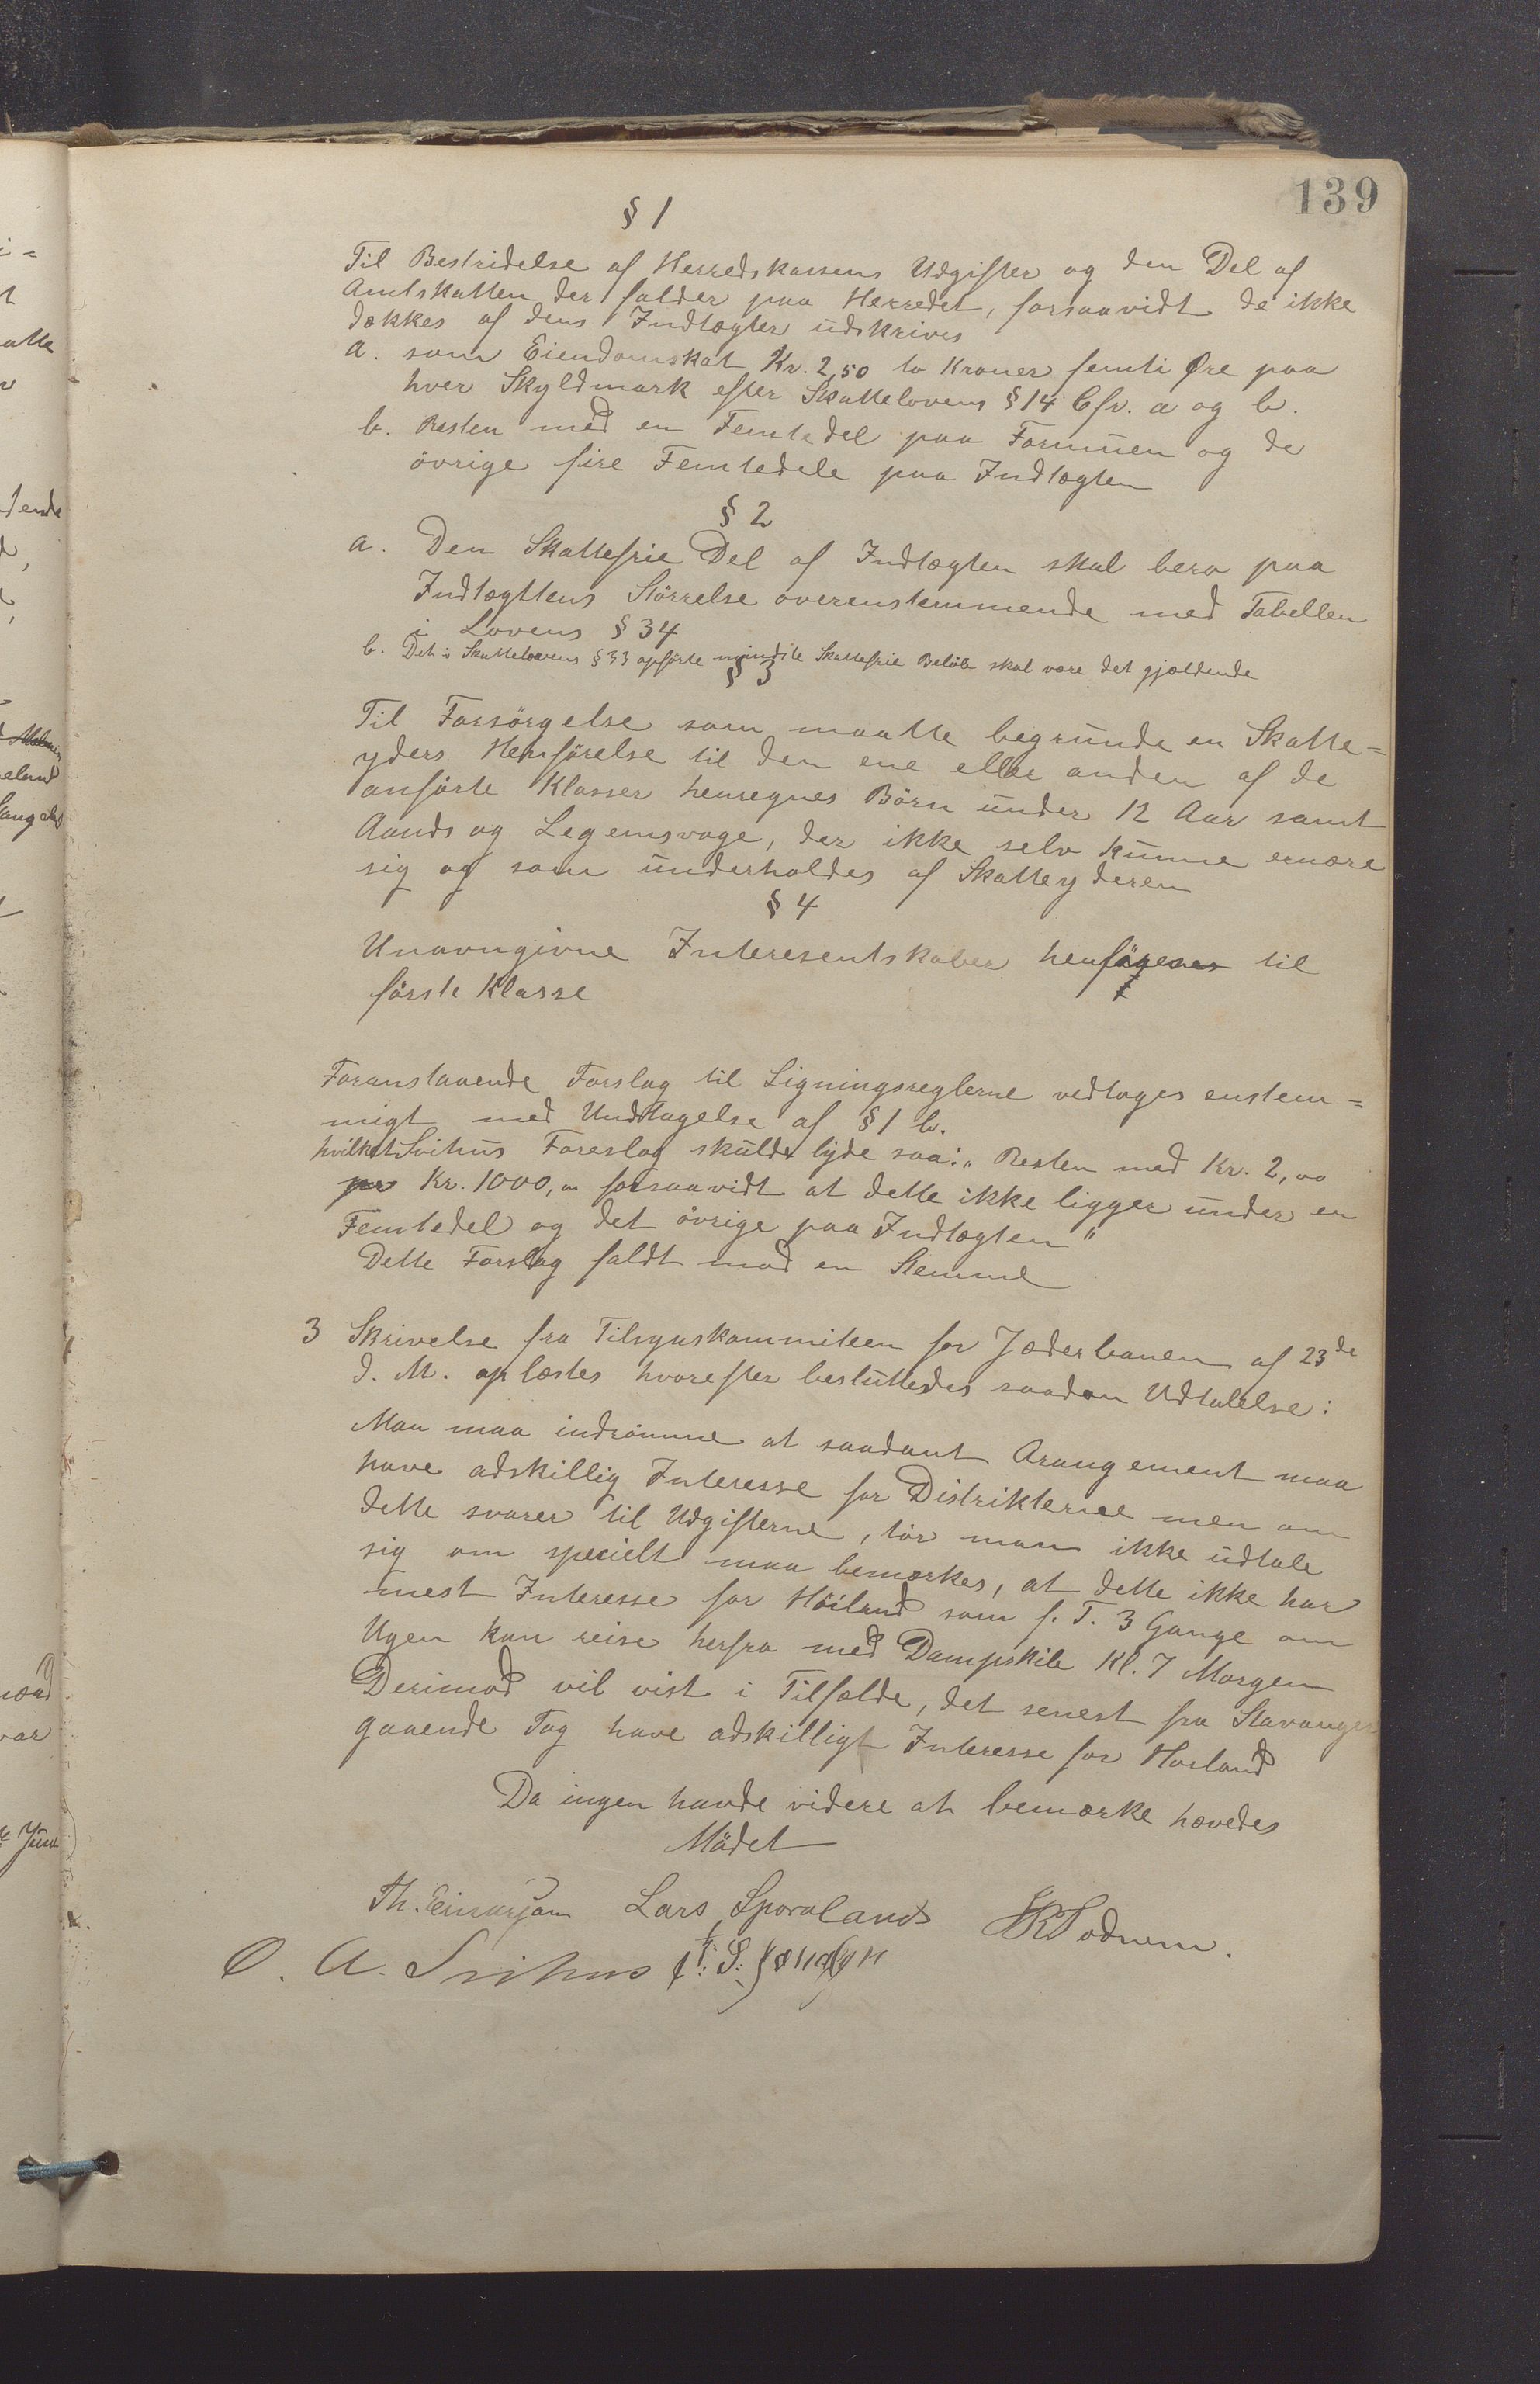 139
§ 1
Til Bestridelse af Herredskassens Udgifter og den Del af
Amtskatten der falder paa Herredet, forsaavidt de ikke
dækkes af dens Indtægter udskrives
a. som Eiendomskat Kr. 2,50 to Kroner femti Øre paa
hver Skyldmark efter Skattelovens § 14 Cfr. a og b.
b. Resten med en Femtedel paa Formuen og de
övrige fire Femtedele paa Indtægten
§ 2
a. Den Skattefrie Del af Indtægten skal bero paa
Indtægttens Störrelse overenstemmende med Tabellen
i Lovens § 34
b. Det i Skattelovens § 33 opförte mindste Skattefrie Belöb skal være det gjældende
§ 3
Til Forsörgelse som maatte begrunde en Skatte=
yders Henförelse til den ene eller anden af de
anförte Klasser henregnes Börn under 12 Aar samt
Aands og Legemsvage, der ikke selv kunne ernære
sig og som underholdes af Skatteyderen
§ 4
Unavngivne Interesentskaber henföres til
förste Klasse
Foranstaaende Forslag til Ligningsreglerne vedtoges enstem=
migt med Undtagelse af § 1 b.
hvilket Svihus Foreslog skulde lyde saa: „Resten med Kr. 2,00
pr Kr. 1000,00 forsaavidt at dette ikke ligger under en
Femtedel og det övrige paa Indtægten"
Dette Forslag faldt mod en Stemme
3 Skrivelse fra Tilsynskommiteen for Jæderbanen af 23de
d. M. oplæstes hvorefter besluttedes saadan Udtalelse:
Man maa indrömme at saadant Arangement maa
have adskillig Interesse for Distrikterne men om
dette svarer til Udgifterne, tör man ikke udtale
sig om specielt maa bemærkes, at dette ikke har
mest Interesse for Höiland som f. T. 3 Gange om
Ugen kan reise herfra med Dampskib Kl. 7 Morgen
Derimod vil vist i Tilfælde, det senest fra Stavanger
gaaende Tog have adskilligt Interesse for Høiland
Da ingen havde videre at bemærke hævedes
Mödet
Th. Einarsen Lars Sporaland
O. A. Svihus